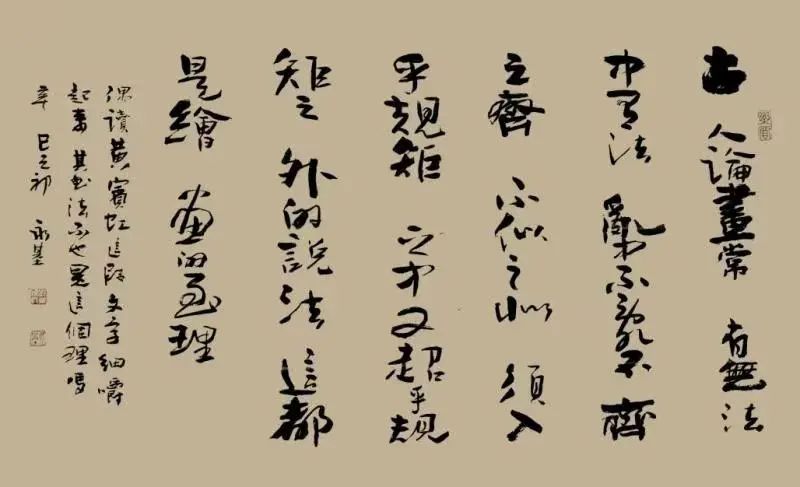 古人論畫常有無法
中有法亂中不亂不齊
之齊不似之似須入
乎規矩之中又超乎規
矩之外的說法這都
是繪畫的至理
偶讀黃賓虹這段文字細嚼
起來其書法不也是這個理嗎
辛巳之初 永基